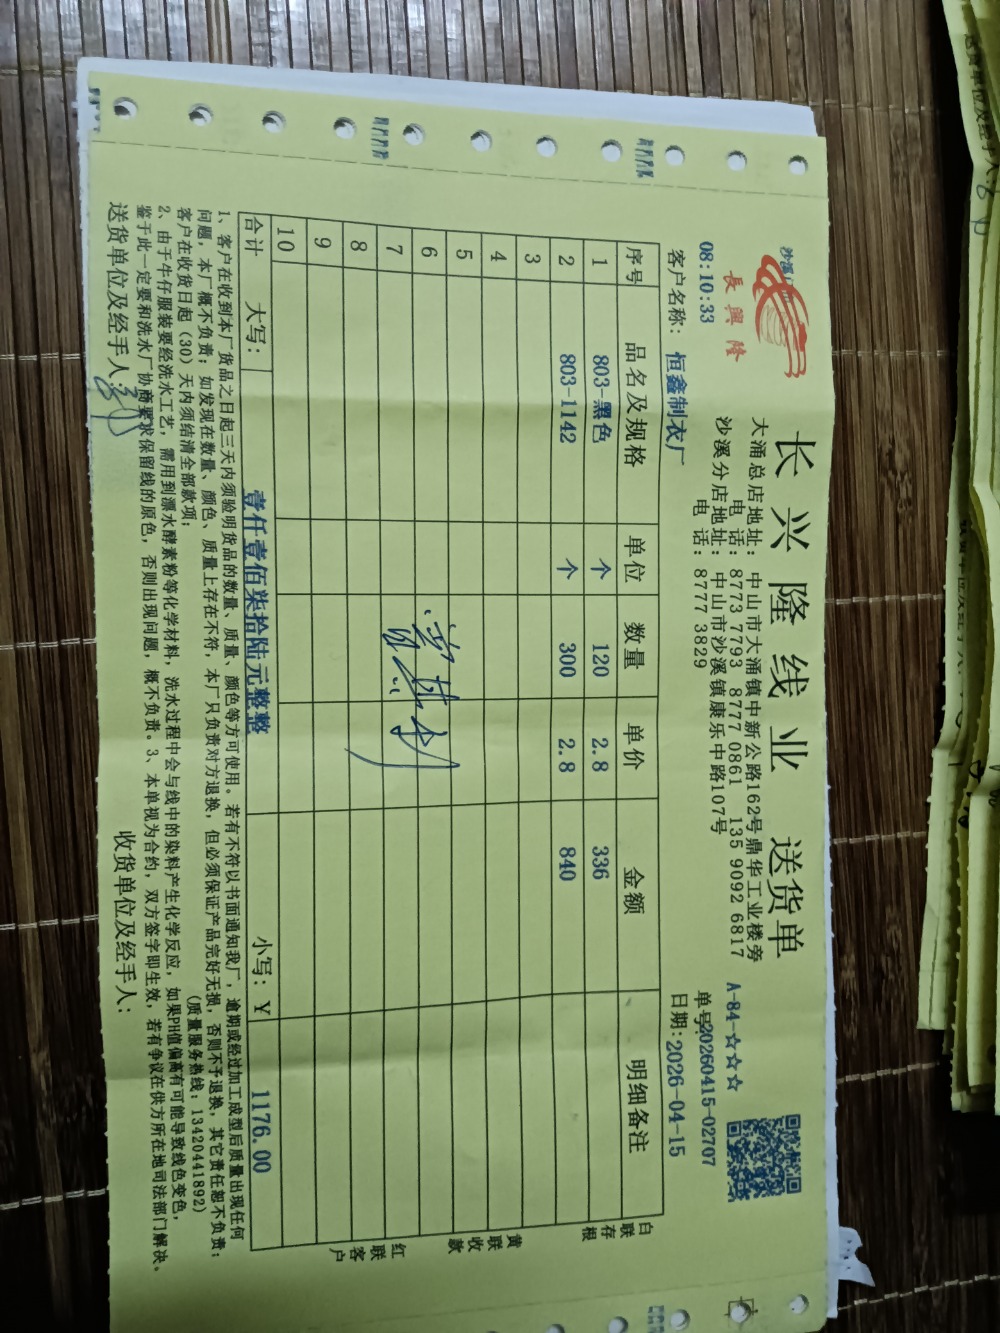 长兴隆线业 送货单
長興隆
大涌总店地址：中山市大涌镇中新公路162号鼎华工业楼旁
电 话：8773 7793 8777 0861 135 9092 6817
沙溪分店地址：中山市沙溪镇康乐中路107号
电 话：8777 3829
A-84-☆☆☆
08:10:33
单号20260415-02707
客户名称：恒鑫制衣厂 日期：2026-04-15
序号 品名及规格 单位 数量 单价 金额 明细备注
1 803-黑色 个 120 2.8 336
2 803-1142 个 300 2.8 840
3
4
5
6
7
8
9
10
合计 大写： 壹仟壹佰柒拾陆元整整 小写：￥ 1176.00
白联存根
黄联收款
红联客户
1、客户在收到本厂货品之日起三天内须验明货品的数量、质量、颜色等方可使用。若有不符以书面通知我厂，逾期或经过加工成型后质量出现任何
问题，本厂概不负责；如发现在数量、颜色、质量上存在不符，本厂只负责对方退换，但必须保证产品完好无损，否则不予退换，其它责任恕不负责；
客户在收货日起（30）天内须结清全部款项； （质量服务热线：13420441892）
2、由于牛仔服装要经洗水工艺，需用到漂水酵素粉等化学材料，洗水过程中会与线中的染料产生化学反应，如果PH值偏高有可能导致线色变色，
鉴于此一定要和洗水厂协商要求保留线的原色，否则出现问题，概不负责。3、本单视为合约，双方签字即生效，若有争议在供方所在地司法部门解决。
送货单位及经手人： 收货单位及经手人：